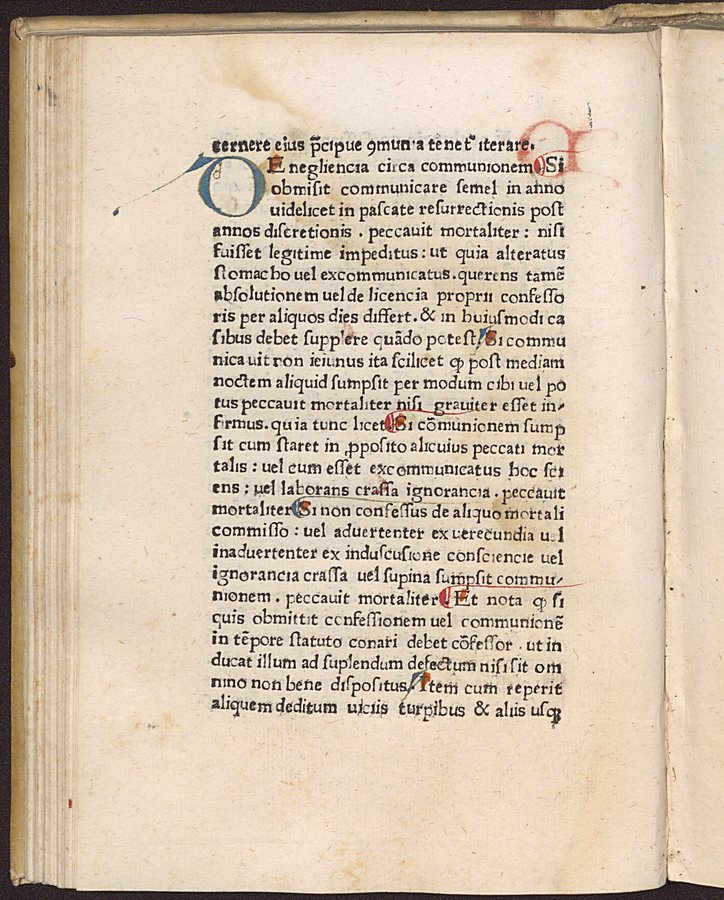 cernere eius p̃cipue ꝯmunia tenet᷑ iterare.
DE negliencia circa communionem Si
obmisit communicare semel in anno
uidelicet in pascate resurrectionis post
annos discretionis . peccavit mortaliter : nisi
fuisset legitime impeditus : ut quia alteratus
stomacho uel excommunicatus . querens tamẽ
absolutionem uel de licencia proprii confesso
ris per aliquos dies differt . & in huiusmodi ca
sibus debet supplere quãdo potest / Si commu
nicauit non ieiunus ita scilicet ꝙ post mediam
noctem aliquid sumpsit per modum cibi uel po
tus peccauit mortaliter nisi grauiter esset in-
firmus . quia tunc licet Si cõmunionem sump
sit cum staret in ꝓposito alicuius peccati mor
talis : uel cum esset excommunicatus hoc sci
ens : uel laborans crassa ignorancia . peccauit
mortaliter Si non confessus de aliquo mortali
commisso : uel aduertenter ex uerecundia uel
inaduertenter ex induscusione consciencie uel
ignorancia crassa uel supina sumpsit commu-
nionem . peccavit mortaliter . Et nota ꝙ si
quis obmittit confessionem uel communionẽ
in tẽpore statuto conari debet cõfessor . ut in
ducat illum ad suplendum defectum nisi sit om
nino non bene dispositus / Item cum reperit
aliquem deditum uiciis turpibus & aliis usqꝫ